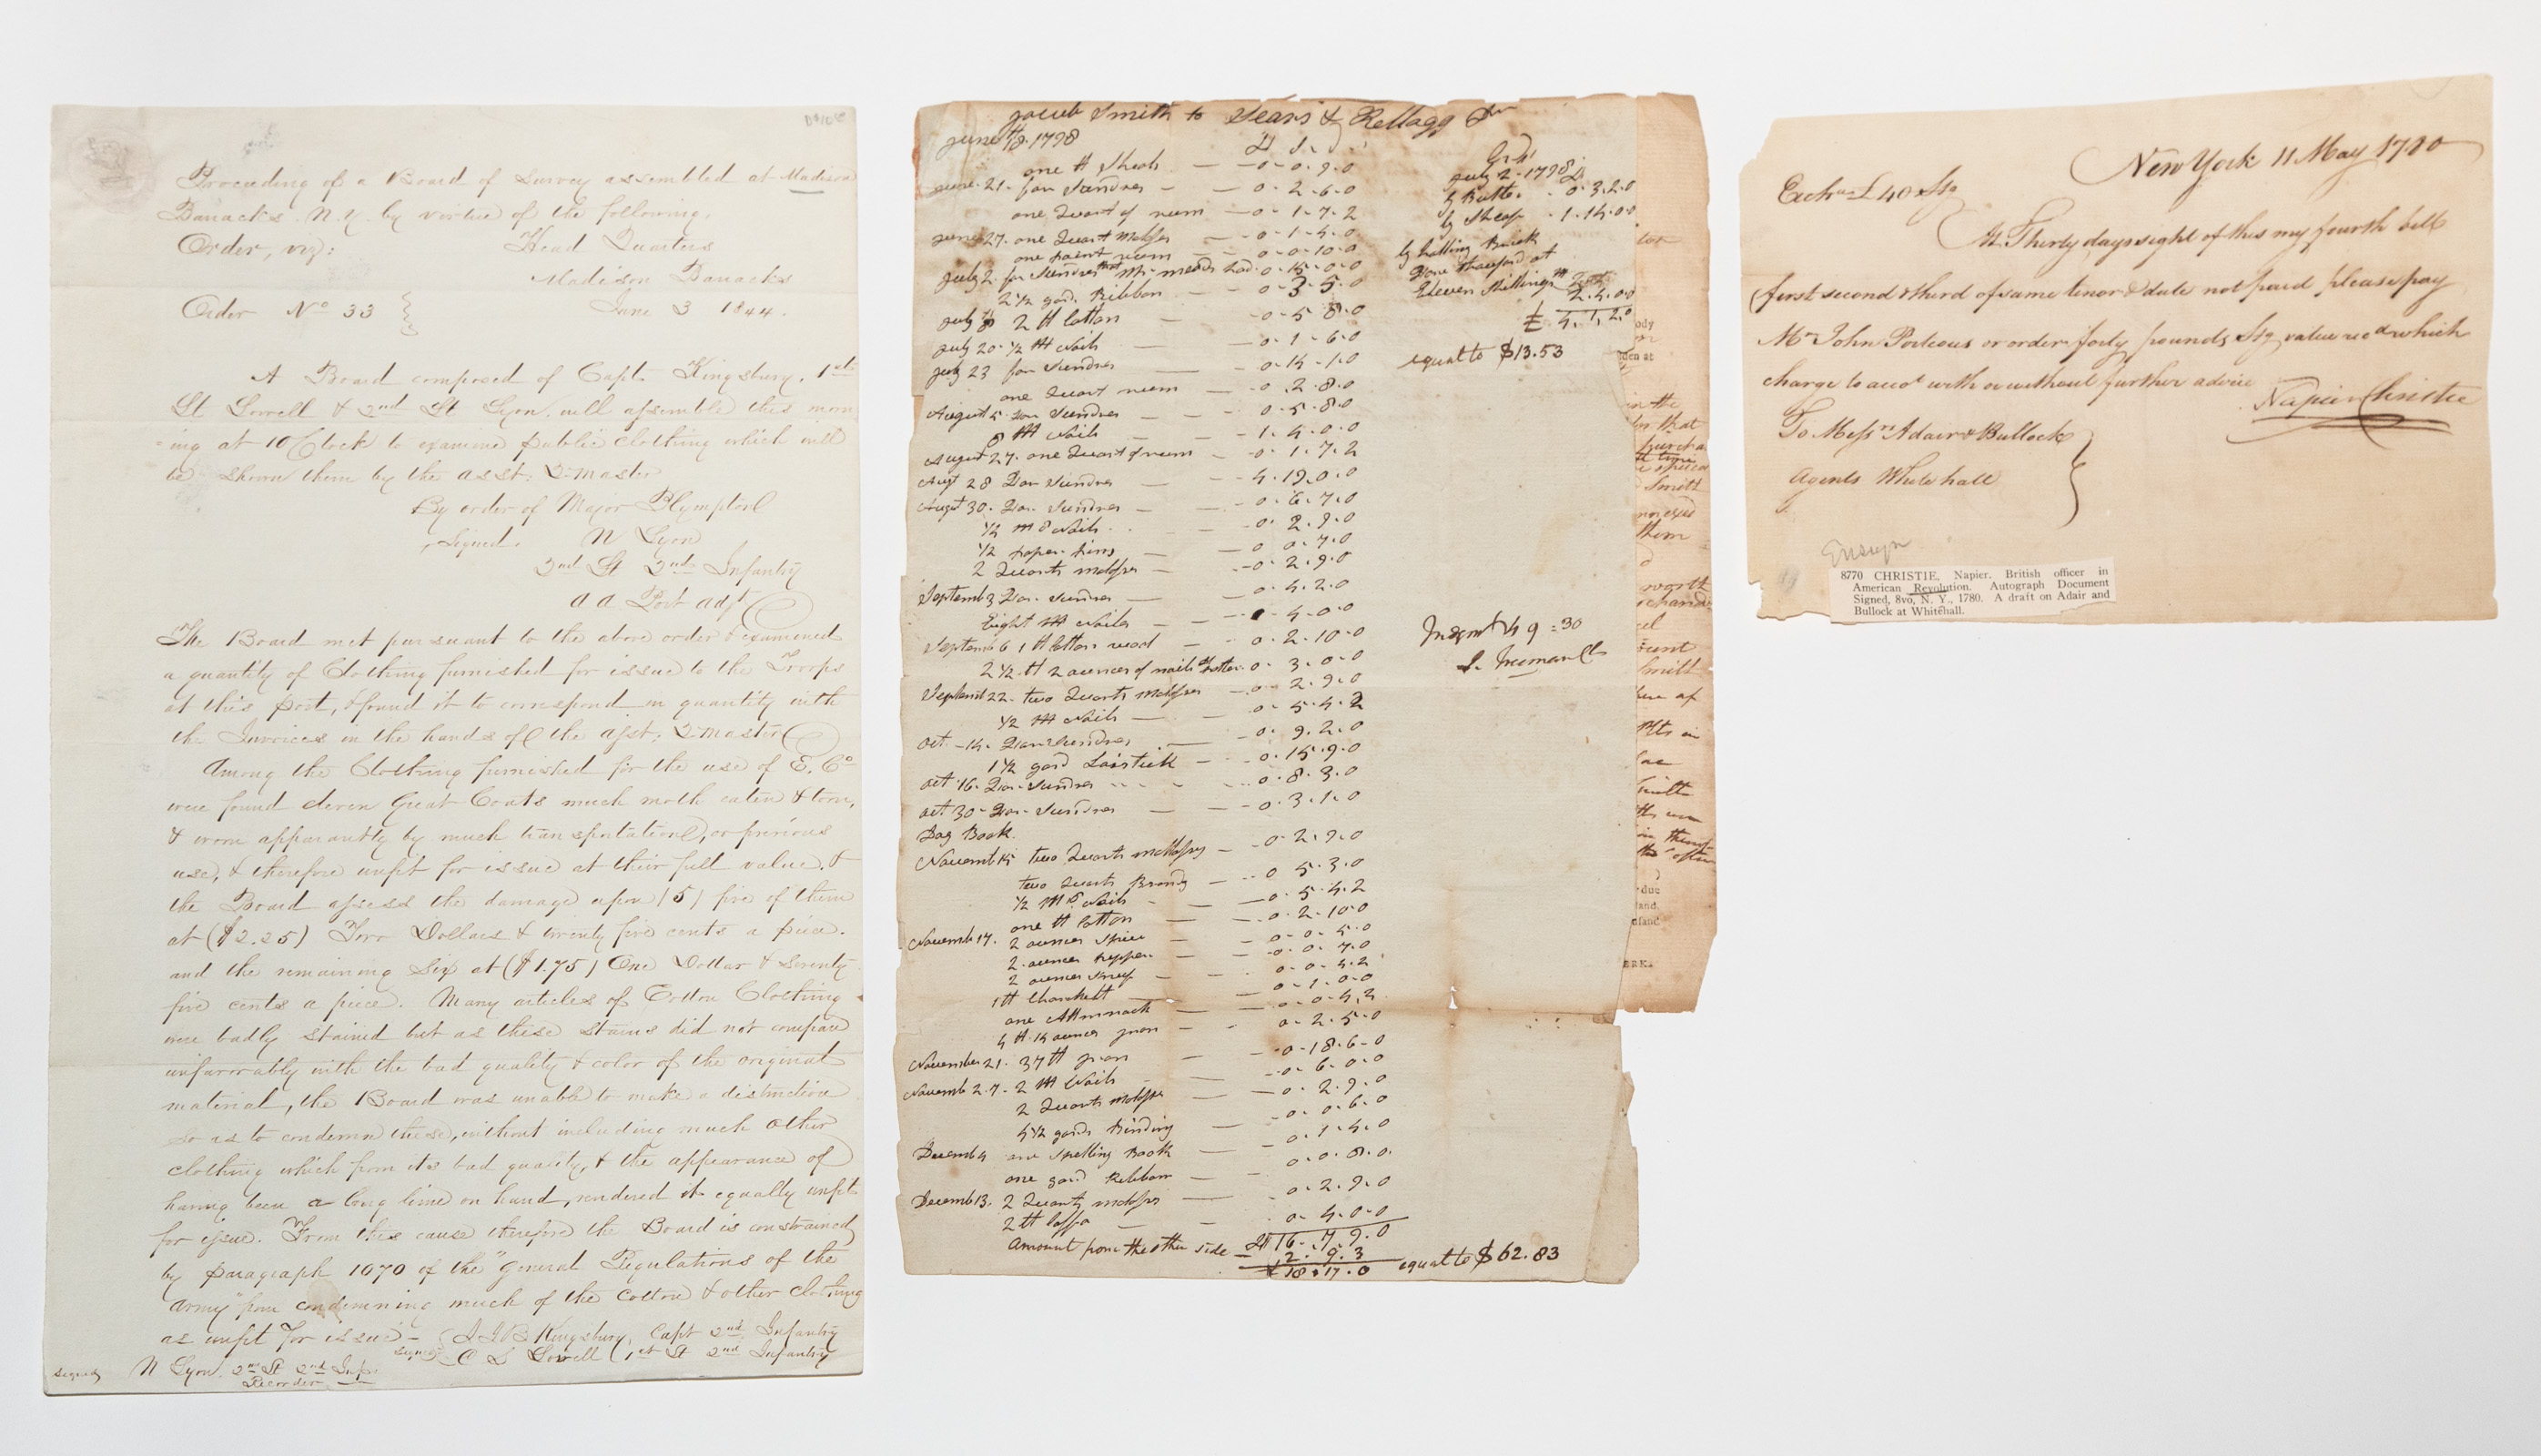 Proceeding of a Board of Survey assembled at Madison
Barracks N.Y. by virtue of the following,
Order, viz:
Head Quarters
Madison Barracks
Order No 33
June 3 1844.
A Board composed of Capt. Kingsbury, 1st
Lt Lovell & 2nd Lt Lyon, will assemble this morn
-ing at 10 O'Clock to examine public clothing which will
be shown them by the asst: Q-master
By order of Major Plympton
Signed. N Lyon
2nd Lt 2nd Infantry
a a Post adjt
The Board met pursuant to the above order & examined
a quantity of Clothing furnished for issue to the Troops
at this post, & found it to correspond in quantity with
the Invoices in the hands of the asst: Q-master
Among the Clothing furnished for the use of E. Co
were found eleven Great Coats much moth eaten & torn,
& worn apparantly by much transportation, or previous
use, & therefore unfit for issue at their full value, &
the Board assess the damage upon (5) five of them
at ($2.25) Two Dollars & twenty five cents a piece.
and the remaining Six at ($1.75) One Dollar & Seventy
five cents a piece. Many articles of Cotton Clothing
were badly stained but as these stains did not compare
unfavorably with the bad quality & color of the original
material, the Board was unable to make a distinction
so as to condemn these, without including much other
clothing which from its bad quality, & the appearance of
having been a long time on hand, rendered it equally unfit
for issue. From this cause therefore the Board is constrained
by paragraph 1070 of the "General Regulations of the
Army" from condemning much of the Cotton & other clothing
as unfit for issue -
J J B Kingsbury, Capt 2nd Infantry
signed C S Lovell 1st Lt 2nd Infantry
signed N Lyon, 2nd Lt 2nd Inf.
Recorder
Jacob Smith to Sears & Kellogg Dr
June 18th. 1798
one # Shead - 0 - 0. 9. 0
June. 21. for Sundres - 0. 2. 6. 0
one Quart of rum - 0 - 1. 7. 2
June 27. one Quart Molasses - 0 - 1 - 4. 0
one paint rum - 0 - 0 - 10. 0
July 2. for Sundres that Mr. meads had. 0. 15. 0. 0
2 1/2 yard. Ribbon - 0 - 3 - 5. 0
July 8 2 # Cotton - 0 - 5 8. 0
July 20. 1/2 M Nails - 0. 1 - 6. 0
July 23 for Sundres - 0. 14 - 1. 0
one Quart rum - 0. 2. 8. 0
August 5. Sundres - 0. 5. 8. 0
8 M Nails - 1. 4. 0. 0
August 27. one Quart of rum - 0. 1. 7. 2
Augt 28 Sundres - 4. 19. 0. 0
August 30. Sundres - 0. 6. 7. 0
1/2 m 8 Nails - 0. 2. 9. 0
1/2 paper pins - 0 0. 7. 0
2 Quarts molasses - 0. 2. 9. 0
Septemb 3 Sundres - 0. 4. 2. 0
Eight M Nails - 4 - 0. 0
Septemb 6 1 # Cotton wool - 0. 2. 10. 0
2 1/2 # 2 ounces of nails 0. 3. 0. 0
Septemb 22. two Quarts molasses - 0. 2. 9. 0
1/2 M Nails - 0. 5. 4. 2
Oct. - 14. Sundres - 0. 9. 2. 0
1 1/2 yard - 0. 15. 9. 0
Oct 16. Sundres - 0. 8. 3. 0
Oct 30. Sundres - 0. 3. 1. 0
Day Book.
Novemb 15 two Quarts molasses - 0. 2. 9. 0
two Quarts Brandy - 0 5. 3. 0
1/2 M 8 Nails - 0. 5. 4. 2
one # Cotton - 0. 2. 10. 0
Novemb 17. 2 ounces Spice - 0. 0. 5. 0
2. ounces pepper - 0. 0. 7. 0
2 ounces Snuf - 0. 0. 4. 2
1 # - 0 - 1. 0. 0
one Allmnack - 0 - 0 - 4. 2
4 # 14 ounces iron - 0. 2. 5. 0
November 21. 37 # iron - 0 - 18. 6 - 0
Novemb 27. 2 M Nails - 0. 6. 0. 0
2 Quarts molasses - 0. 2. 9. 0
4 1/2 yards Binding - 0. 0. 6. 0
Decemb 4 one Spelling Book - 0. 1. 4. 0
one yard Ribbon 0. 0. 8. 0.
Decemb 13. 2 Quarts molasses 0. 2. 9. 0
2 # 0. 4. 0. 0
16. 7. 9. 0
Amount from the other side 2. 9. 3
£ 18. 17. 0 equal to $62.83
Cr
July 2 - 1798
by Butter. 0. 3. 2. 0
by Sheap . 1. 14. 0. 0
by halling Brick
Eleven Shillings
2. 4. 0. 0
£ 4. 1. 2. 0
equal to $13.53
Judgmt 49 = 30
ody
den at
in the
for that
Smith
them
worth
Smith
due
land.
ERK.
New York 11 May 1780
Exche £40 Stg
At Thirty days sight of this my fourth bill
(first second & third of same tenor & date not paid please pay
Mr John Porteous or order forty pounds Stg value recd which
charge to acct with or without further advice
Napier Christie
To Messrs Adair & Bullock
Agents White hall
Ensign
8770 CHRISTIE, Napier. British officer in
American Revolution. Autograph Document
Signed, 8vo, N. Y., 1780. A draft on Adair and
Bullock at Whitehall.